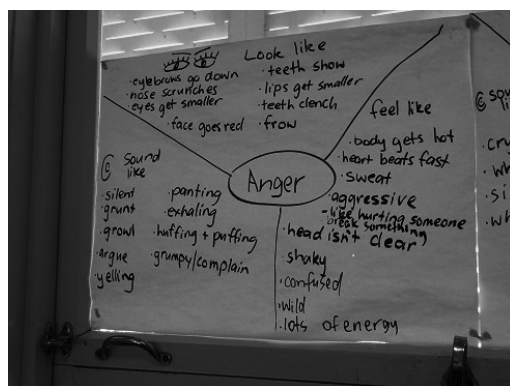 Look like
eyebrows go down
nose scrunches
eyes get smaller
face goes red
teeth show
lips get smaller
teeth clench
frow
Anger
feel like
body gets hot
heart beats fast
sweat
aggressive
- like hurting someone
break something
head isn't clear)
shaky
confused
wild
lots of energy
sound
like
silent
grunt
growl
argue
yelling
panting
exhaling
huffing + puffing
grumpy/complain